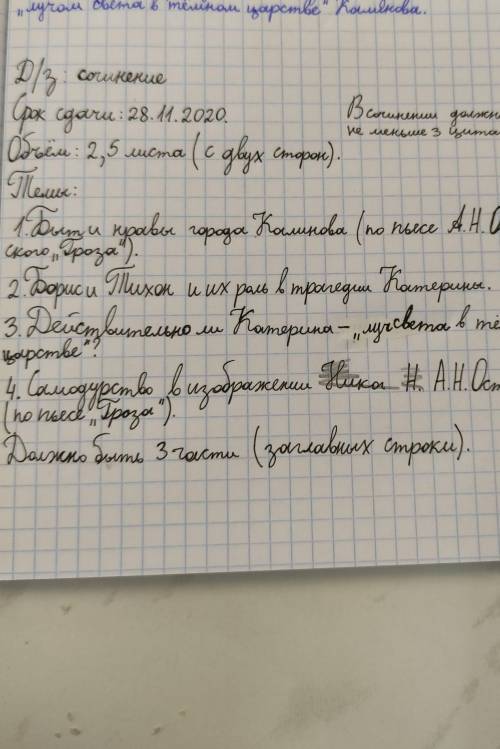 „лучом света в тёмном царстве" Калинова.
Д/з: сочинение
Срок сдачи: 28.11.2020.
В сочинении должн
не меньше 3 цита
Объём: 2,5 листа (с двух сторон).
Темы:
1. Быт и нравы города Калинова (по пьесе А.Н.О
ского „Гроза").
2. Борис и Тихон и их роль в трагедии Катерины.
3. Действительно ли Катерина – „луч света в тё
царстве"?
4. Самодурство в изображении А.Н.Ост
(по пьесе „Гроза").
Должно быть 3 части (заглавных строки).